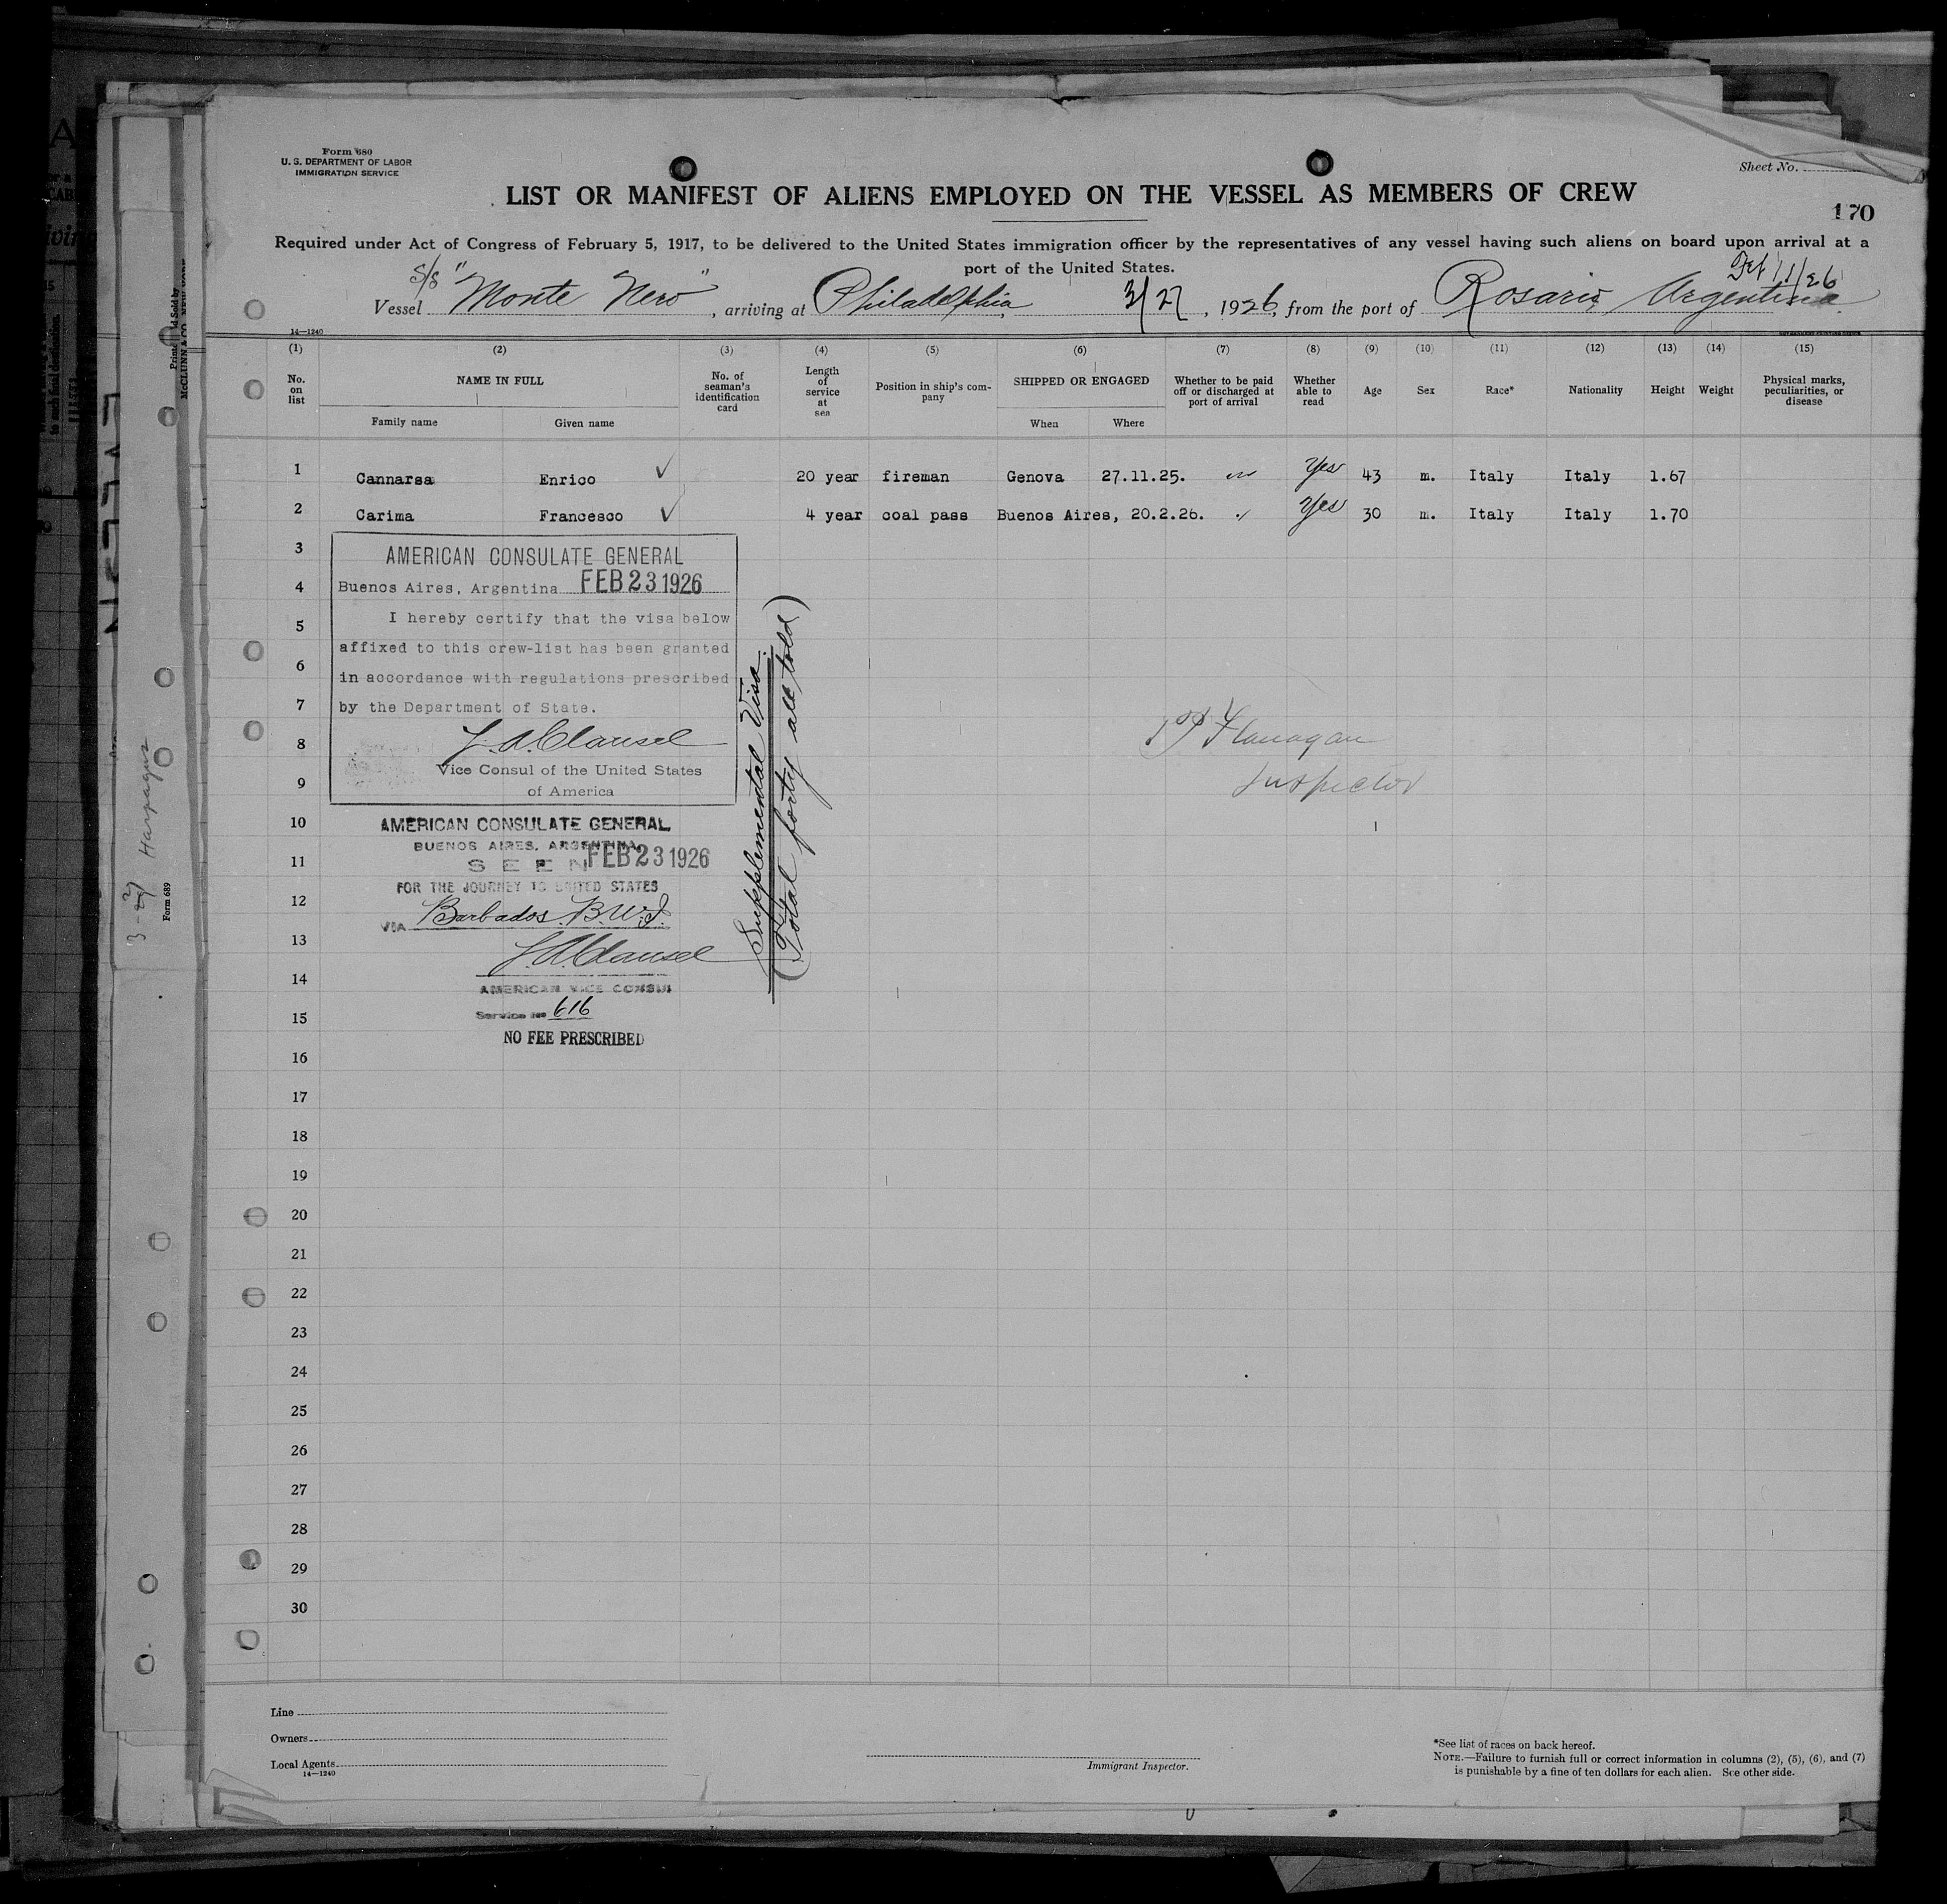 Form 680
U. S. DEPARTMENT OF LABOR
IMMIGRATION SERVICE
Sheet No.
LIST OR MANIFEST OF ALIENS EMPLOYED ON THE VESSEL AS MEMBERS OF CREW
170
Required under Act of Congress of February 5, 1917, to be delivered to the United States immigration officer by the representatives of any vessel having such aliens on board upon arrival at a
port of the United States.
Vessel S/S "Monte Nero", arriving at Philadelphia 3/27, 1926, from the port of Rosario Argentina
14—1240
(1) (2) (3) (4) (5) (6) (7) (8) (9) (10) (11) (12) (13) (14) (15)
No. on list NAME IN FULL Family name Given name No. of seaman's identification card Length of service at sea Position in ship's company SHIPPED OR ENGAGED When Where Whether to be paid off or discharged at port of arrival Whether able to read Age Sex Race* Nationality Height Weight Physical marks, peculiarities, or disease
1 Cannarsa Enrico ✓ 20 year fireman Genova 27.11.25. Yes 43 m. Italy Italy 1.67
2 Carima Francesco ✓ 4 year coal pass Buenos Aires, 20.2.26. Yes 30 m. Italy Italy 1.70
3
AMERICAN CONSULATE GENERAL
4
Buenos Aires, Argentina FEB 23 1926
5
I hereby certify that the visa below
affixed to this crew-list has been granted
6
in accordance with regulations prescribed
7
by the Department of State.
8
Vice Consul of the United States
9
of America
Supplemental Visa.
(Total forty all told)
Flanagan
Inspector
10
AMERICAN CONSULATE GENERAL
BUENOS AIRES, ARGENTINA
11
SEEN FEB 23 1926
FOR THE JOURNEY TO UNITED STATES
12
VIA Barbados B.W.I.
13
14
AMERICAN VICE CONSUL
15
Service No 616
NO FEE PRESCRIBED
16
17
18
19
20
21
22
23
24
25
26
27
28
29
30
Line
Owners
Local Agents
14—1240
Immigrant Inspector.
*See list of races on back hereof.
NOTE.—Failure to furnish full or correct information in columns (2), (5), (6), and (7)
is punishable by a fine of ten dollars for each alien. See other side.
Form 689